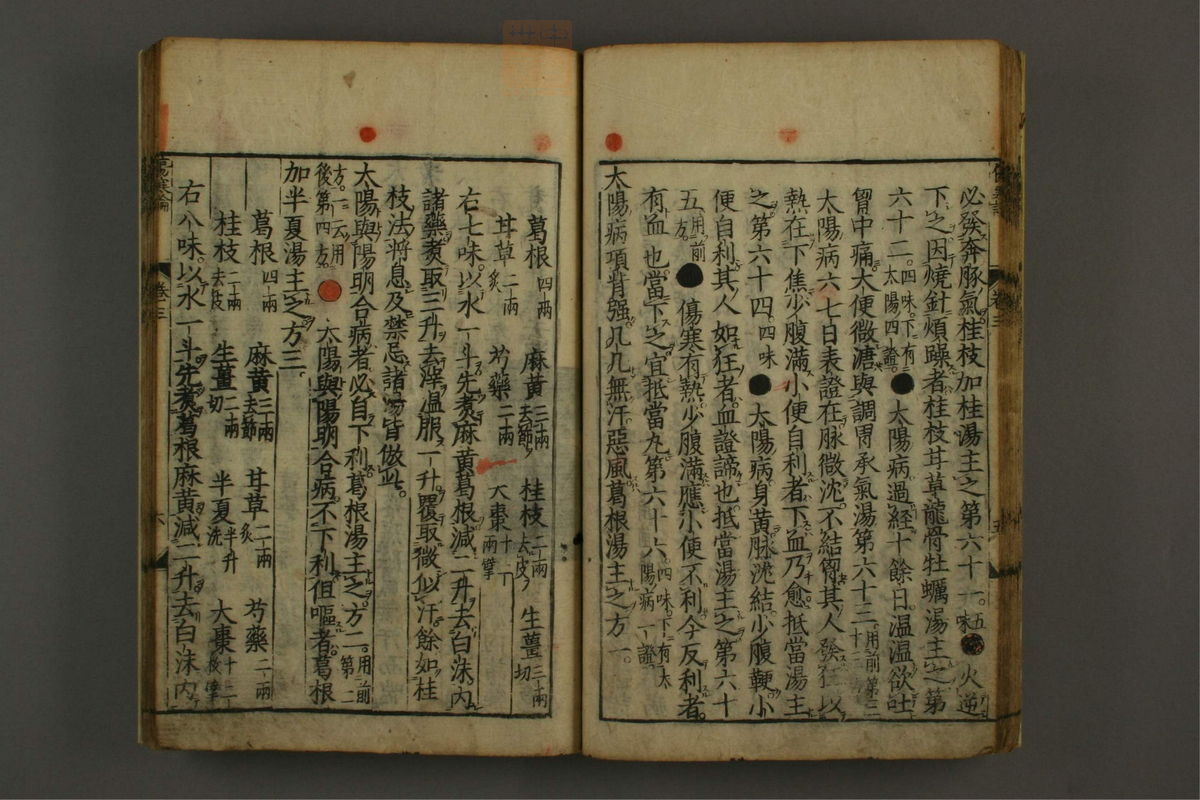 必發奔豚氣桂枝加桂湯主之第六十一五味●火逆
下之因燒針煩躁者桂枝甘草龍骨牡蠣湯主之第
六十二四味下有太陽四證●太陽病過経十餘日温温欲吐
胷中痛大便微溏與調胃承氣湯第六十三用前第三十
太陽病六七日表證在脉微沈不結胷其人發狂以
熱在下焦少腹滿小便自利者下血乃愈抵當湯主
之第六十四四味●太陽病身黄脉沈結少腹鞕小
便自利其人如狂者血證諦也抵當湯主之第六十
五用前方●傷寒有熱少腹滿應小便不利今反利者
有血也當下之宜抵當丸第六十六四味下有太陽病一證
太陽病項背强几几無汗惡風葛根湯主之方一
葛根四兩 麻黄三兩去節 桂枝二兩去皮 生薑三兩切
甘草二兩炙 芍藥二兩 大棗十二擘
右七味以水一斗先煑麻黄葛根減二升去白沫内
諸藥煑取三升去滓温服一升覆取微似汗餘如桂
枝法將息及禁忌諸湯皆倣此
太陽與陽明合病者必自下利葛根湯主之方二用前第一
方一云用後第四方●太陽與陽明合病不下利但嘔者葛根
加半夏湯主之方三
葛根四兩 麻黄三兩去節 甘草二兩炙 芍藥二兩
桂枝二兩去皮 生薑二兩切 半夏半升洗 大棗十二枚擘
右八味以水一斗先煑葛根麻黄減二升去白沫内
傷寒論 卷三 六
卷三 五